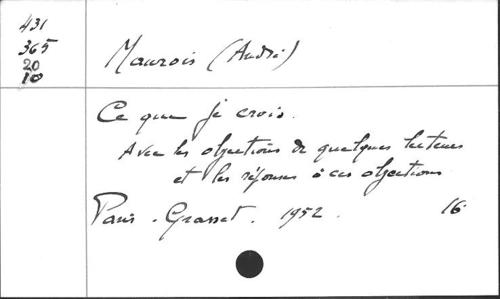 431
365
20
10
Maurois (André)
Ce que je crois.
Avec les objections de quelques lecteurs
et les réponses à ces objections
Paris. Grasset. 1952.
16